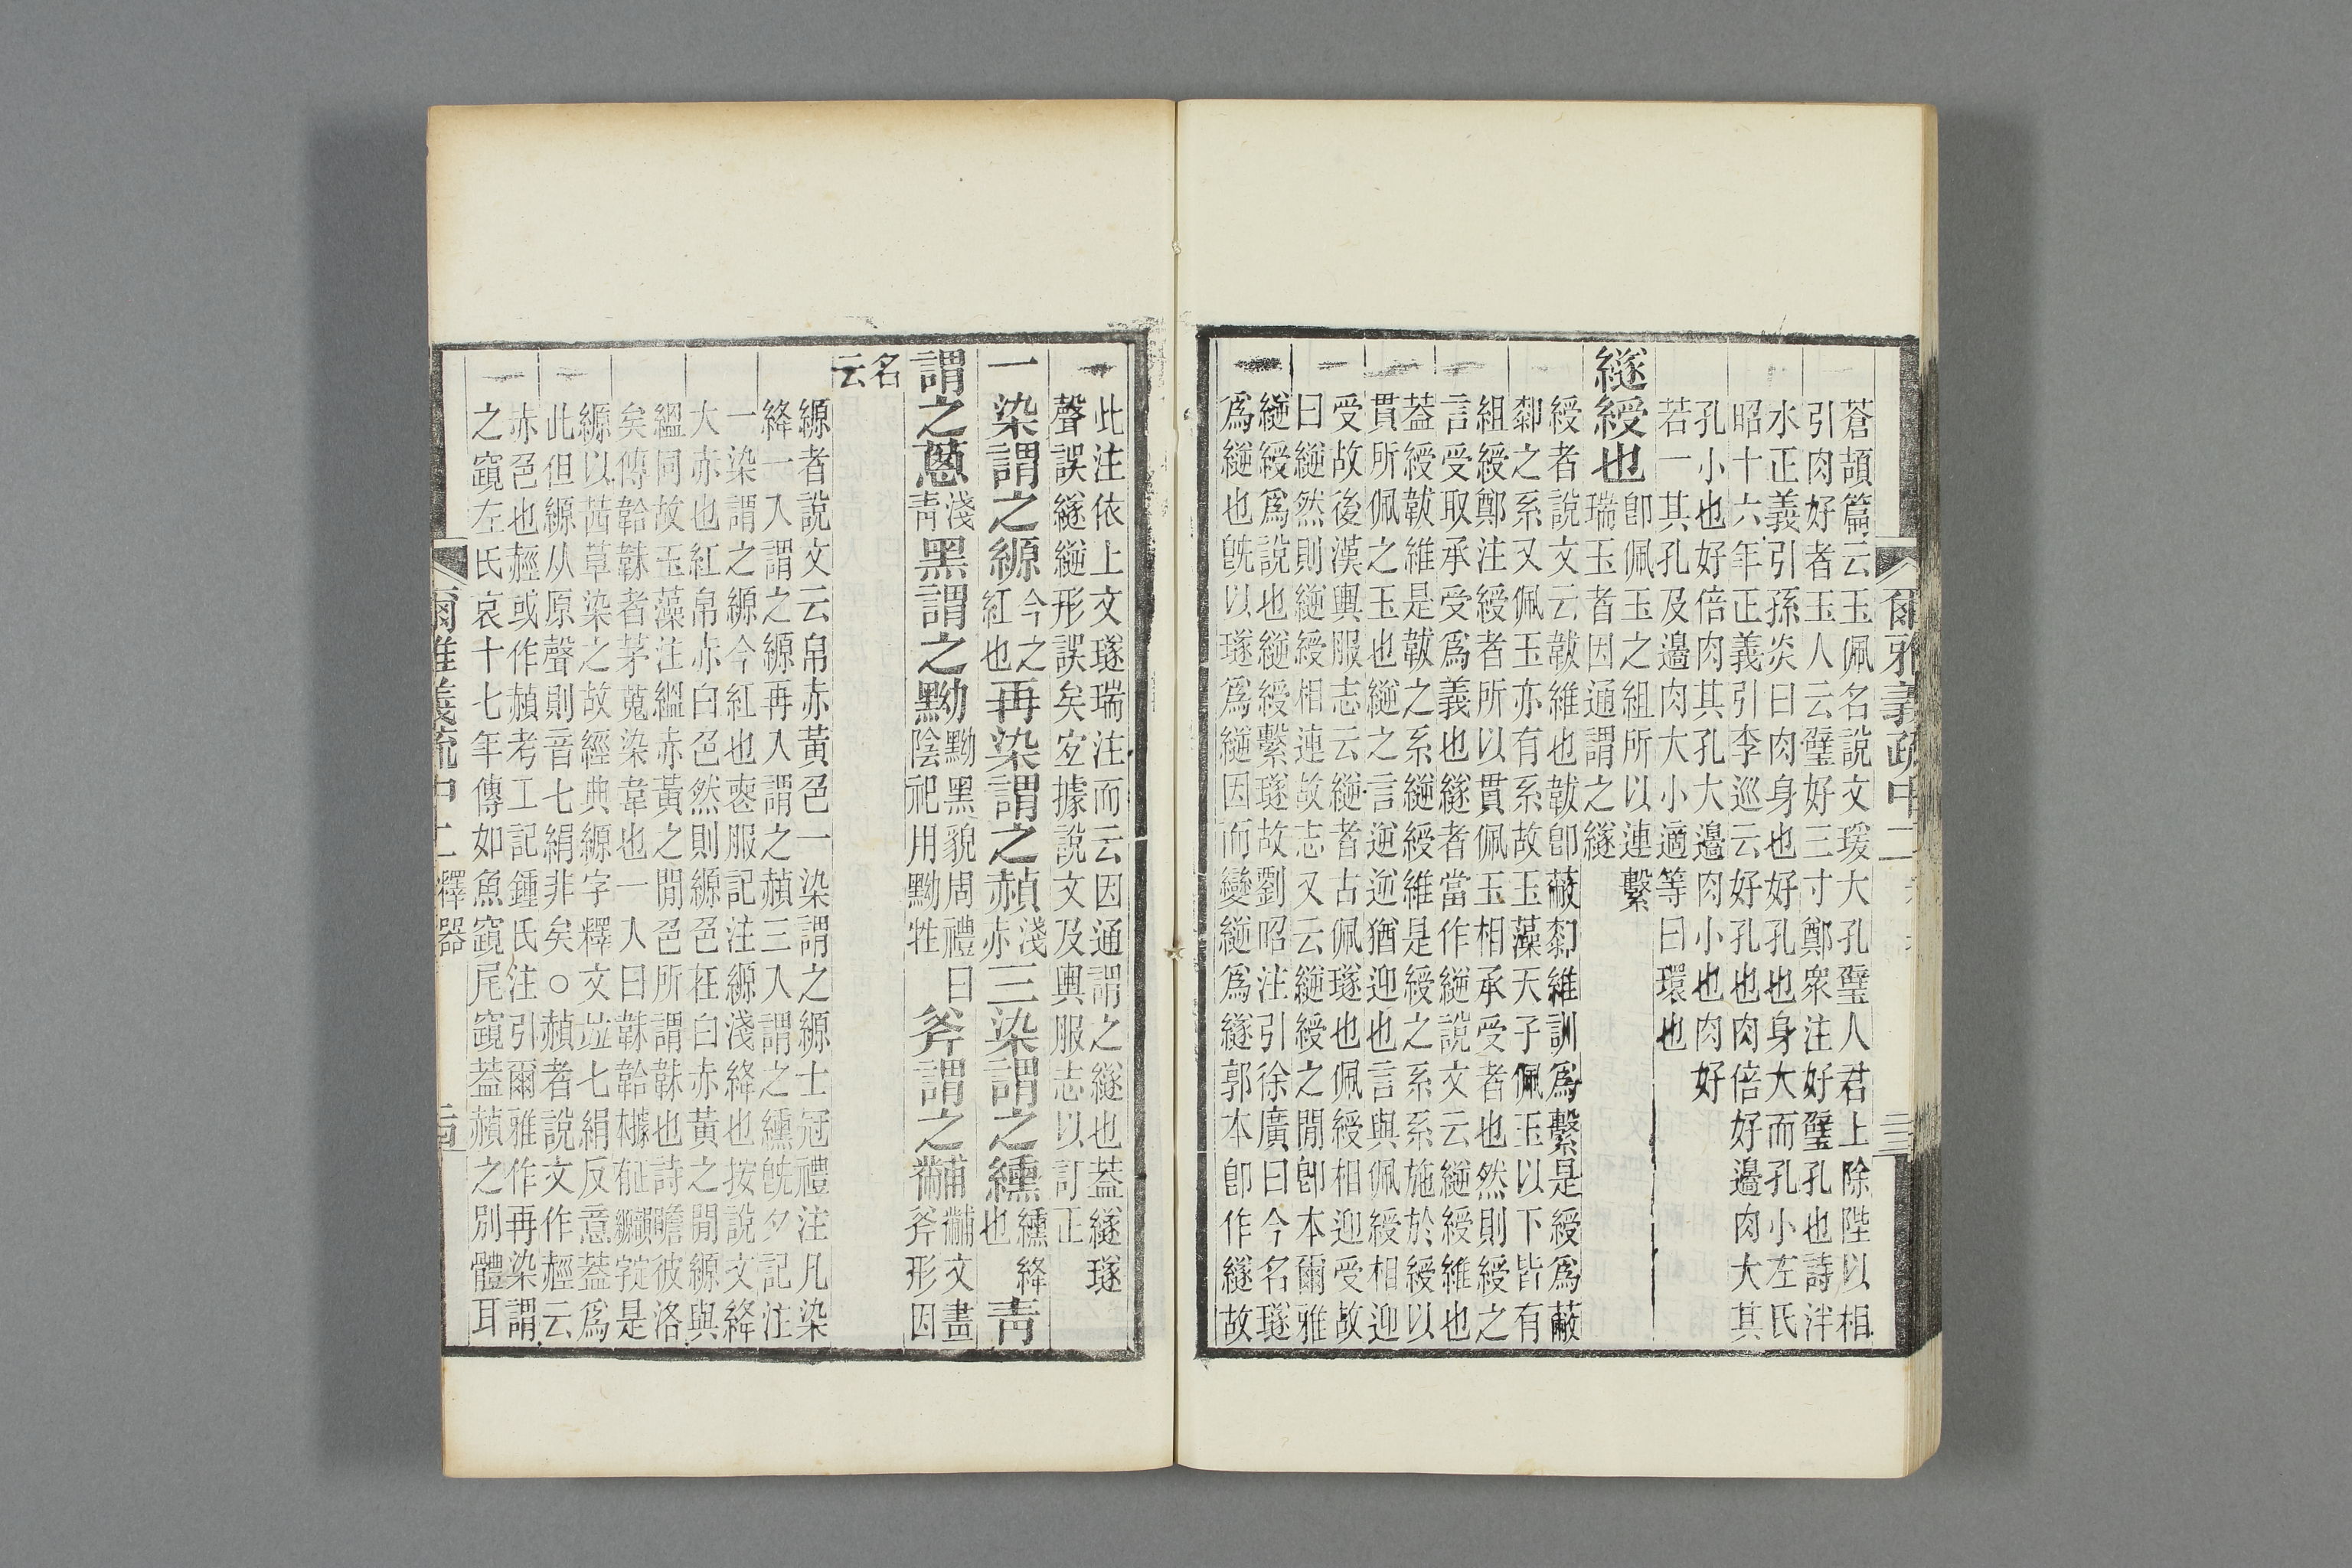 蒼頡篇云玉佩名說文瑗大孔璧人君上除陛以相
引肉好者玉人云璧好三寸鄭衆注好璧孔也詩泮
水正義引孫炎曰肉身也好孔也身大而孔小左氏
昭十六年正義引李巡云好孔也肉倍好邊肉大其
孔小也好倍肉其孔大邊肉小也肉好
若一其孔及邊肉大小適等曰環也
繸綬也
卽佩玉之組所以連繫
瑞玉者因通謂之繸
綬者說文云韍維也韍卽蔽䣛維訓爲繫是綬爲蔽
䣛之系又佩玉亦有系故玉藻天子佩玉以下皆有
組綬鄭注綬者所以貫佩玉相承受者也然則綬之
言受取承受爲義也繸者當作縌說文云縌綬維也
蓋綬韍維是韍之系縌綬維是綬之系系施於綬以
貫所佩之玉也縌之言逆逆猶迎也言與佩綬相迎
受故後漢輿服志云縌者古佩璲也佩綬相迎受故
曰縌然則縌綬相連故志又云縌綬之閒卽本爾雅
縌綬爲說也縌綬繫璲故劉昭注引徐廣曰今名璲
爲縌也旣以璲爲縌因而變縌爲繸郭本卽作繸故
爾雅義疏中二
三三
此注依上文璲瑞注而云因通謂之繸也蓋繸璲
聲誤繸縌形誤矣宐據說文及輿服志以訂正
一染謂之縓今之紅也再染謂之赬淺赤三染謂之纁纁絳也靑
謂之蔥淺靑黑謂之黝黝黑貌周禮曰陰祀用黝牲斧謂之黼黼文畫斧形因
名云
縓者說文云帛赤黃色一染謂之縓士冠禮注凡染
絳一入謂之縓再入謂之赬三入謂之纁旣夕記注
一染謂之縓今紅也喪服記注縓淺絳也按說文絳
大赤也紅帛赤白色然則縓色在白赤黃之閒縓與
縕同故玉藻注縕赤黃之閒色所謂韎也詩瞻彼洛
矣傳韐韎者茅蒐染韋也一人曰韎韐
縓以茜草染之故經典縓字釋文竝七絹反意蓋爲
此但縓从原聲則音七絹非矣○赬者說文作䞓云
赤色也䞓或作赬考工記鍾氏注引爾雅作再染謂
之竀左氏哀十七年傳如魚竀尾竀蓋赬之別體耳
爾雅義疏中二 釋器